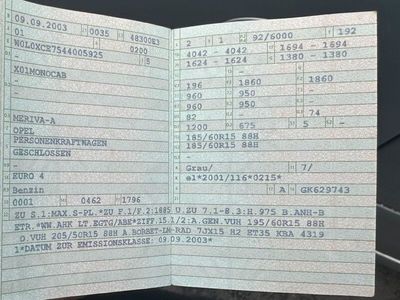 09.09.2003 0035 48300E3
01 0200
W0L0XCE7544005925 5
-
X01MONOCAB
-
MERIVA-A
OPEL
PERSONENKRAFTWAGEN
GESCHLOSSEN
-
EURO 4
Benzin
0001 0462 1796
2 1 92/6000 192
4042 - 4042 1694 - 1694
1624 - 1624 1380 - 1380
- -
196 1860 1860
960 950 -
960 950 -
82 - 74
1200 675 5 -
185/60R15 88H
185/60R15 88H
-
Grau/ 7/
e1*2001/116*0215*
A GK629743
ZU S.1:MAX.S-PL.*ZU F.1/F.2:1885 U.ZU 7.1-8.3:H.975 B.ANH-B
ETR.*WW.AHK LT.EGTG/ABE*ZIFF.15.1/2:A.GEN.VUH 195/60R15 88H
O.VUH 205/50R15 88H A.BORBET-LM-RAD 7JX15 H2 ET35 KBA 4319
1*DATUM ZUR EMISSIONSKLASSE: 09.09.2003*